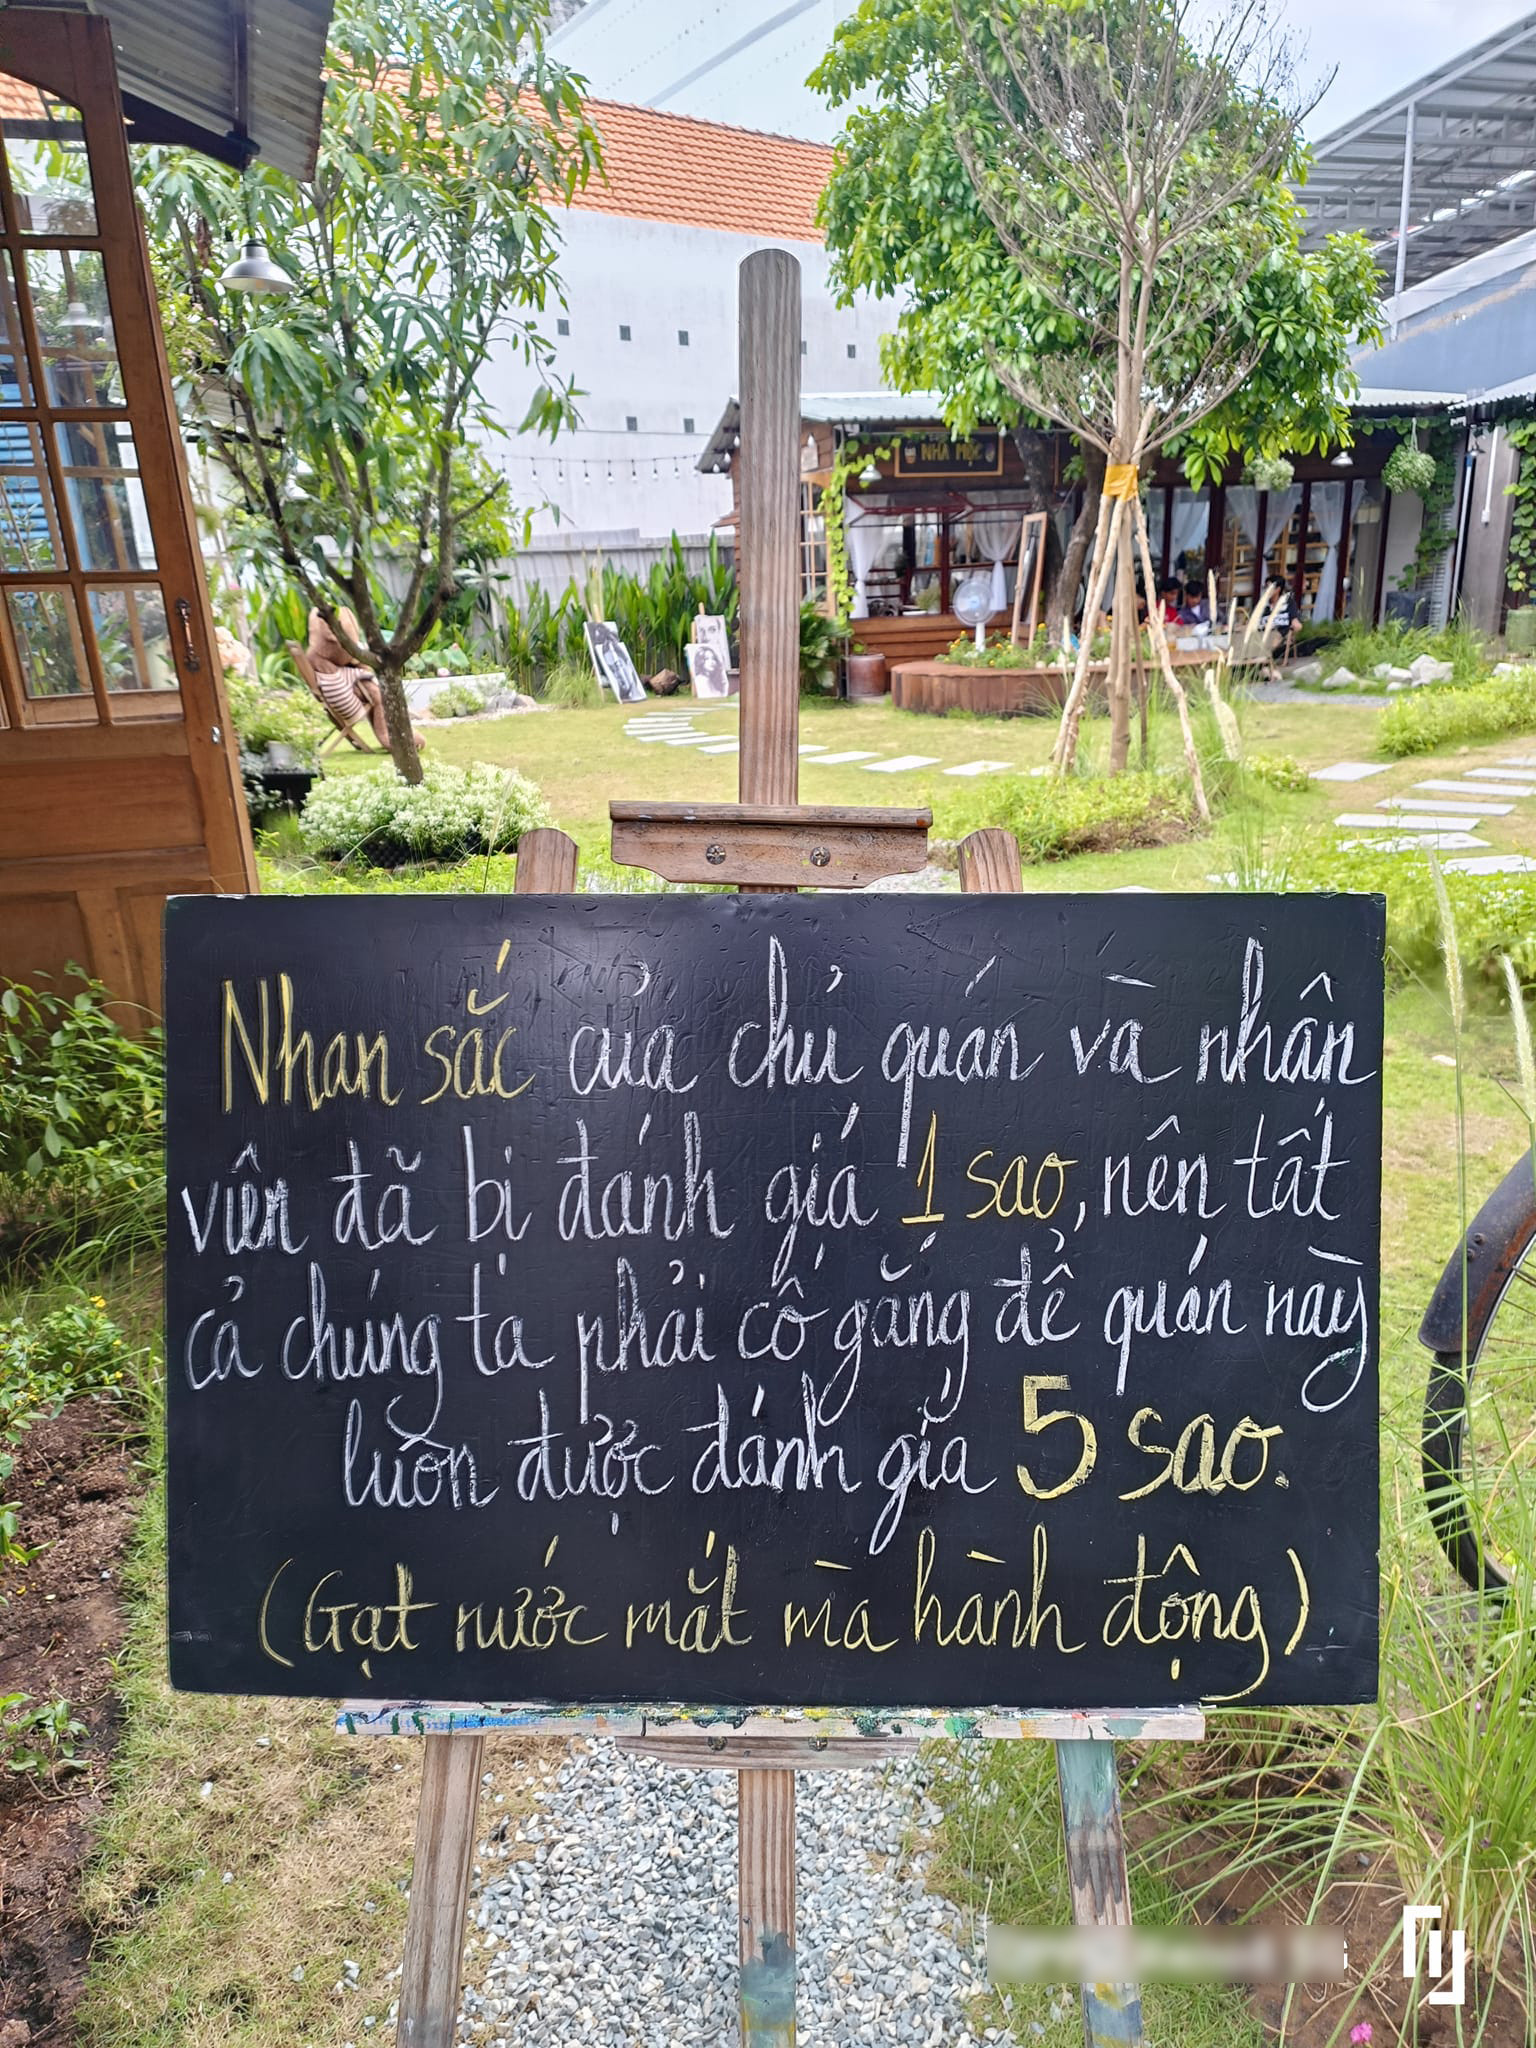 NHÀ MỘC
Nhan sắc của chủ quán và nhân
viên đã bị đánh giá 1 sao, nên tất
cả chúng ta phải cố gắng để quán này
luôn được đánh giá 5 sao.
(Gạt nước mắt mà hành động)